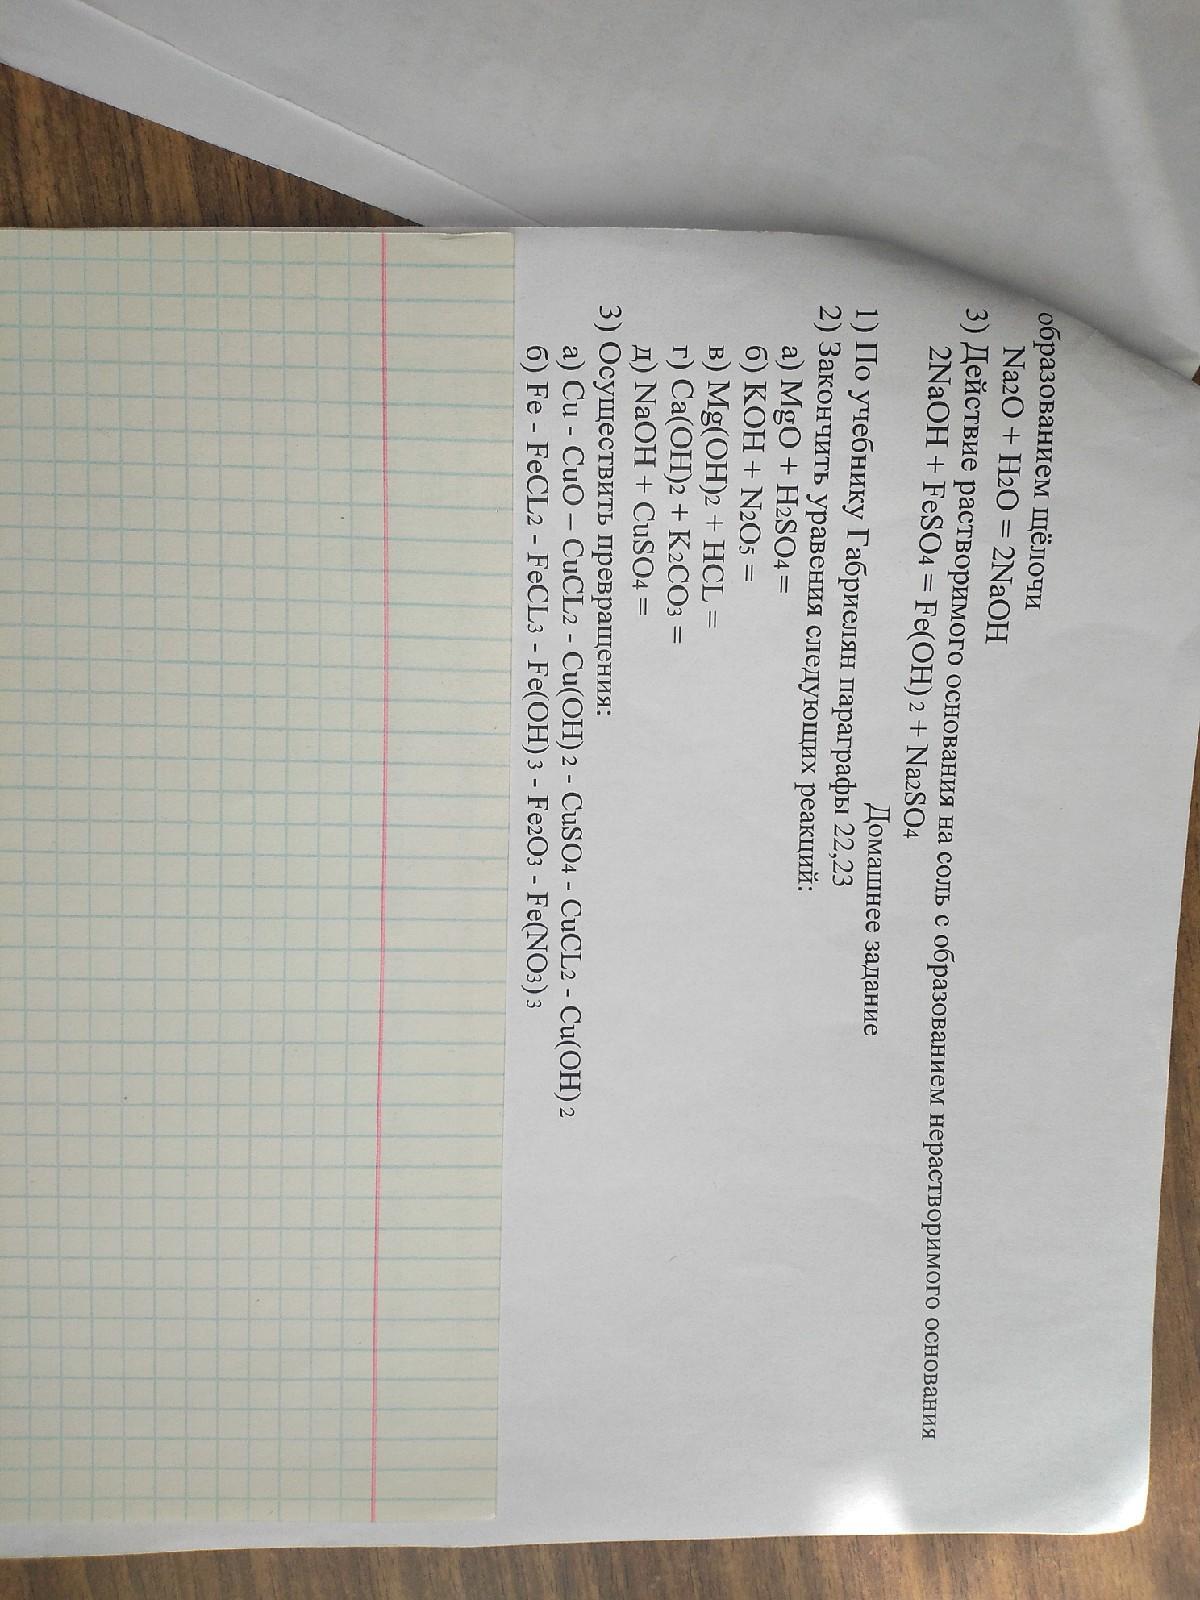 образованием щёлочи
Na2O + H2O = 2NaOH
3) Действие растворимого основания на соль с образованием нерастворимого основания
2NaOH + FeSO4 = Fe(OH) 2 + Na2SO4
Домашнее задание
1) По учебнику Габриелян параграфы 22,23
2) Закончить уравения следующих реакций:
а) MgO + H2SO4 =
б) KOH + N2O5 =
в) Mg(OH)2 + HCL =
г) Ca(OH)2 + K2CO3 =
д) NaOH + CuSO4 =
3) Осуществить превращения:
а) Cu - CuO – CuCL2 - Cu(OH) 2 - CuSO4 - CuCL2 - Cu(OH) 2
б) Fe - FeCL2 - FeCL3 - Fe(OH) 3 - Fe2O3 - Fe(NO3) 3